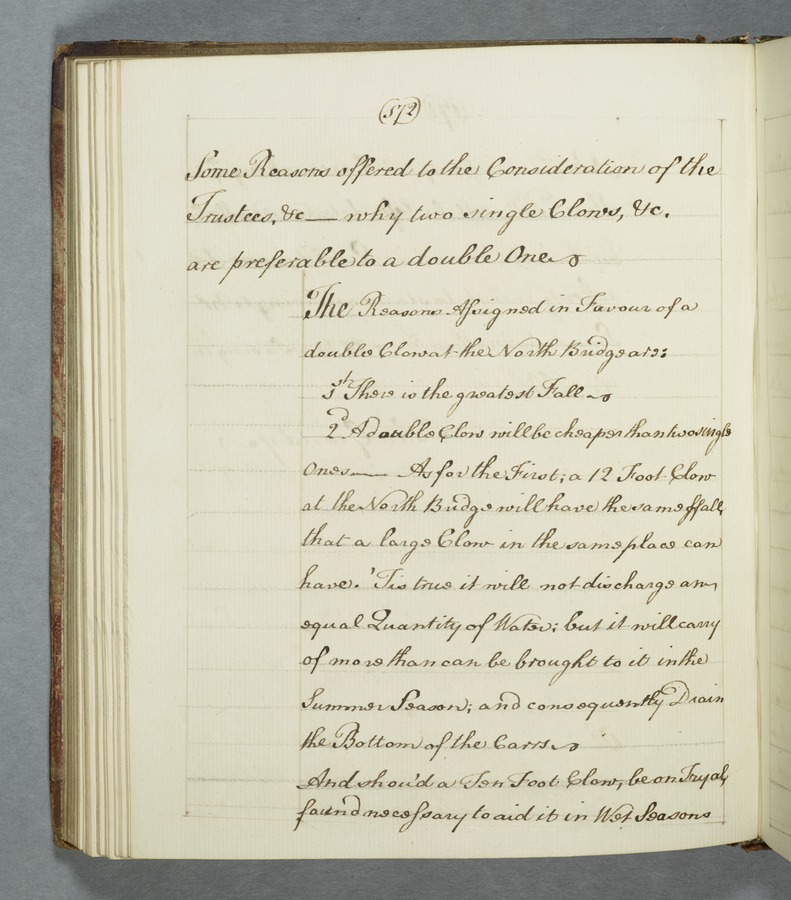 572
Some Reasons offered to the Consideration of the
Trustees, &c — why two single Clows, &c.
are preferable to a double One
The Reasons Assigned in Favour of a
double Clow at the North Bridge are:
1st There is the greatest Fall
2d A double Clow will be cheaper than two single
Ones — As for the First; a 12 Foot Clow
at the North Bridge will have the same ffall,
that a large Clow in the same place can
have. 'Tis true it will not discharge an
equal Quantity of Water; but it will carry
of more than can be brought to it in the
Summer Season; and consequently Drain
the Bottom of the Carrs
And shou'd a Ten Foot Clow, be on Tryal,
found necessary to aid it in Wet Seasons